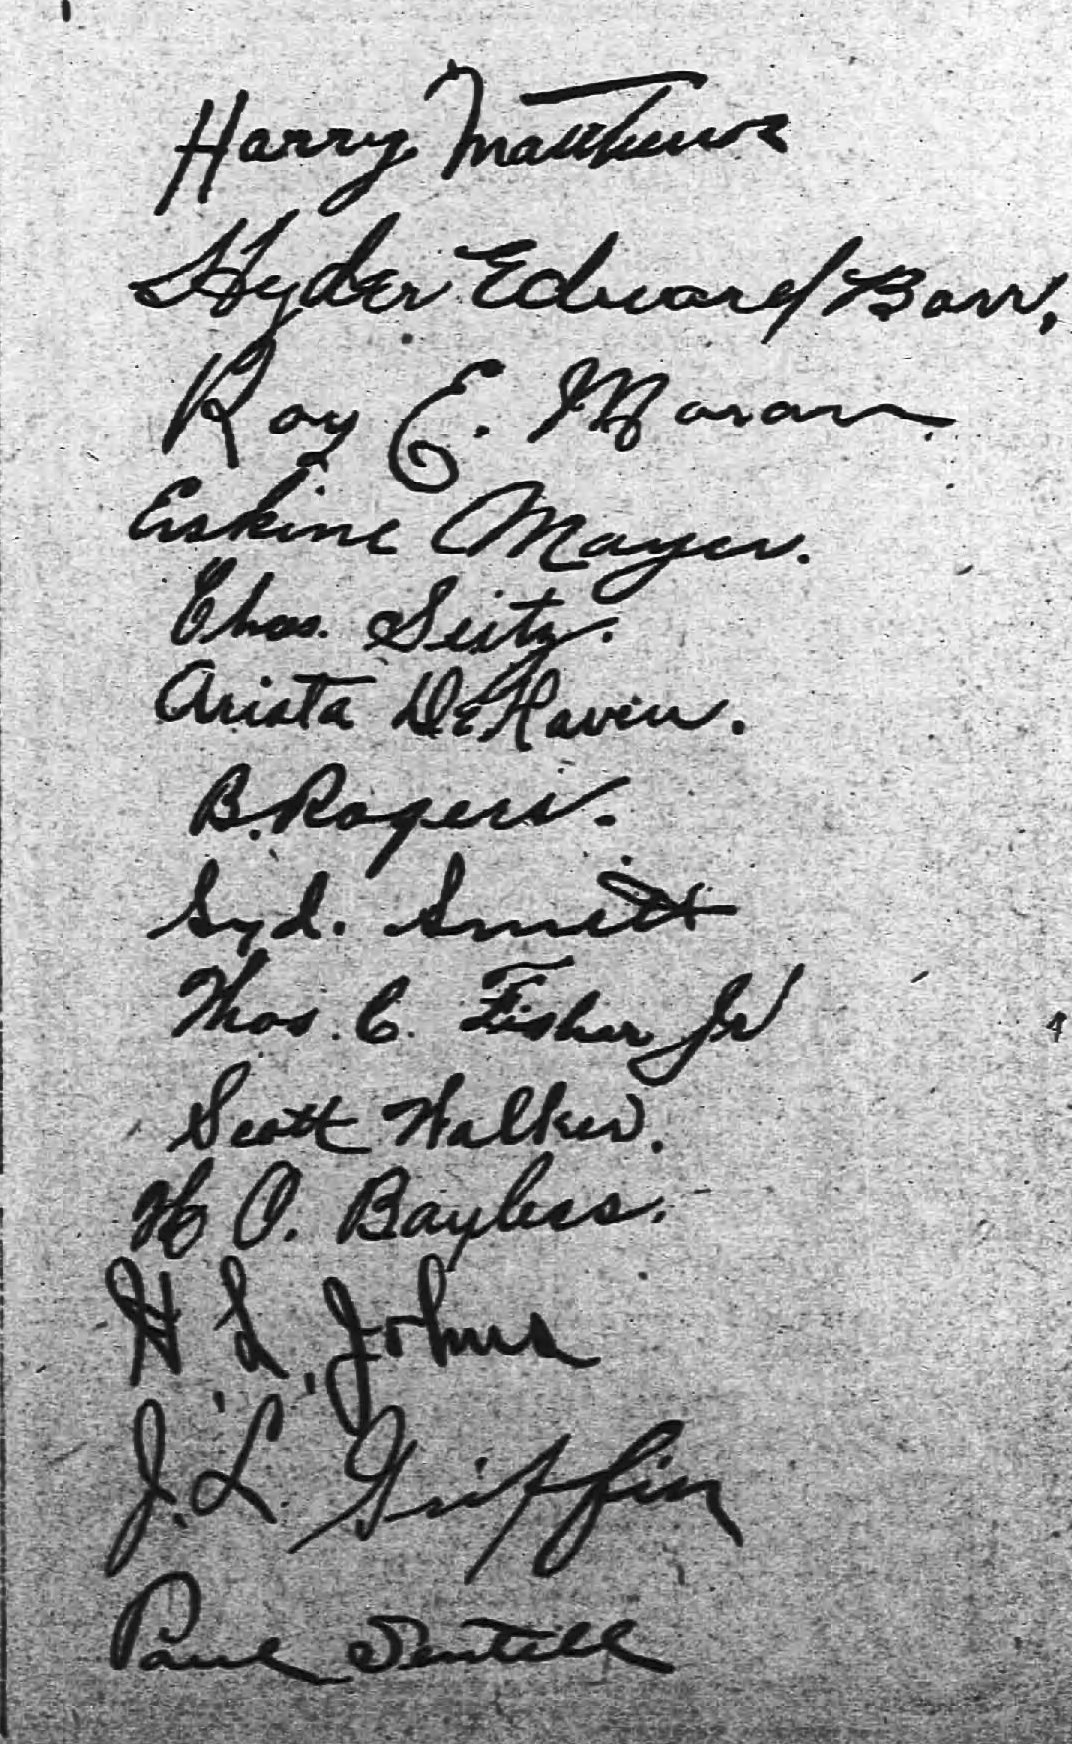 Harry Matthews
Hyder Edward Barr,
Roy E. Moran.
Erskine Mayer.
Chas. Seitz.
Arista DeHaven.
B. Rogers.
Syd. Smith
Thos. C. Fisher Jr
Scott Walker.
H O. Bayless.
H L, Johns
J. L. Griffin
Paul Sentell